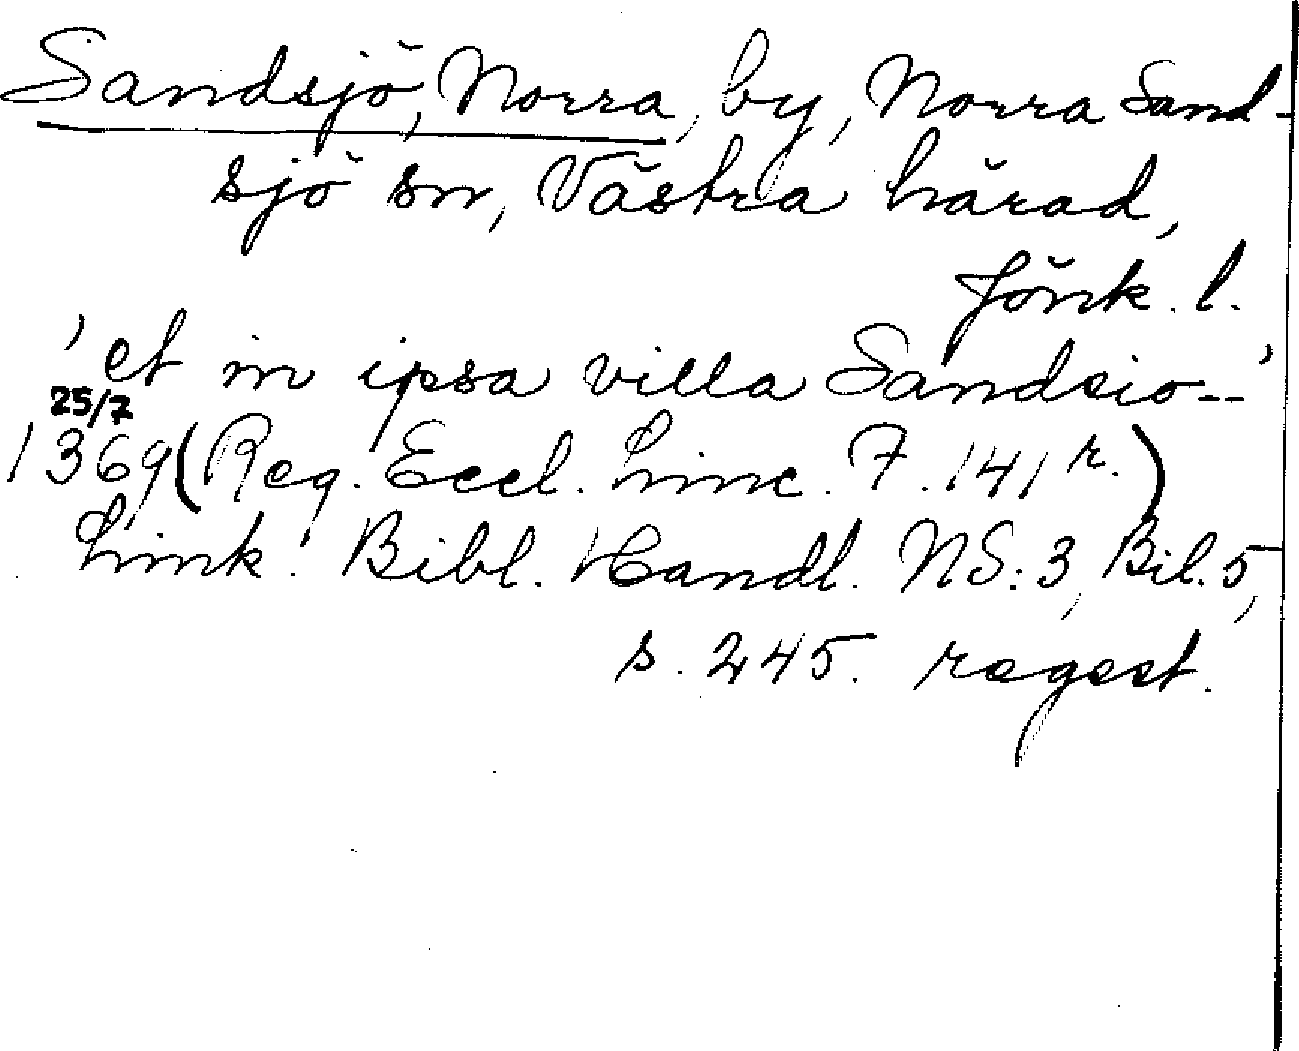 Sandsjö, Norra, by, Norra Sand-
sjö sn, Västra härad,
Jönk. l.
'et in ipsa villa Sandsio--'
25/7
1369 (Reg. Eccl. Linc. F. 141 r.)
Link. Bibl. Handl. NS: 3, Bil. 5,
s. 245. regest.